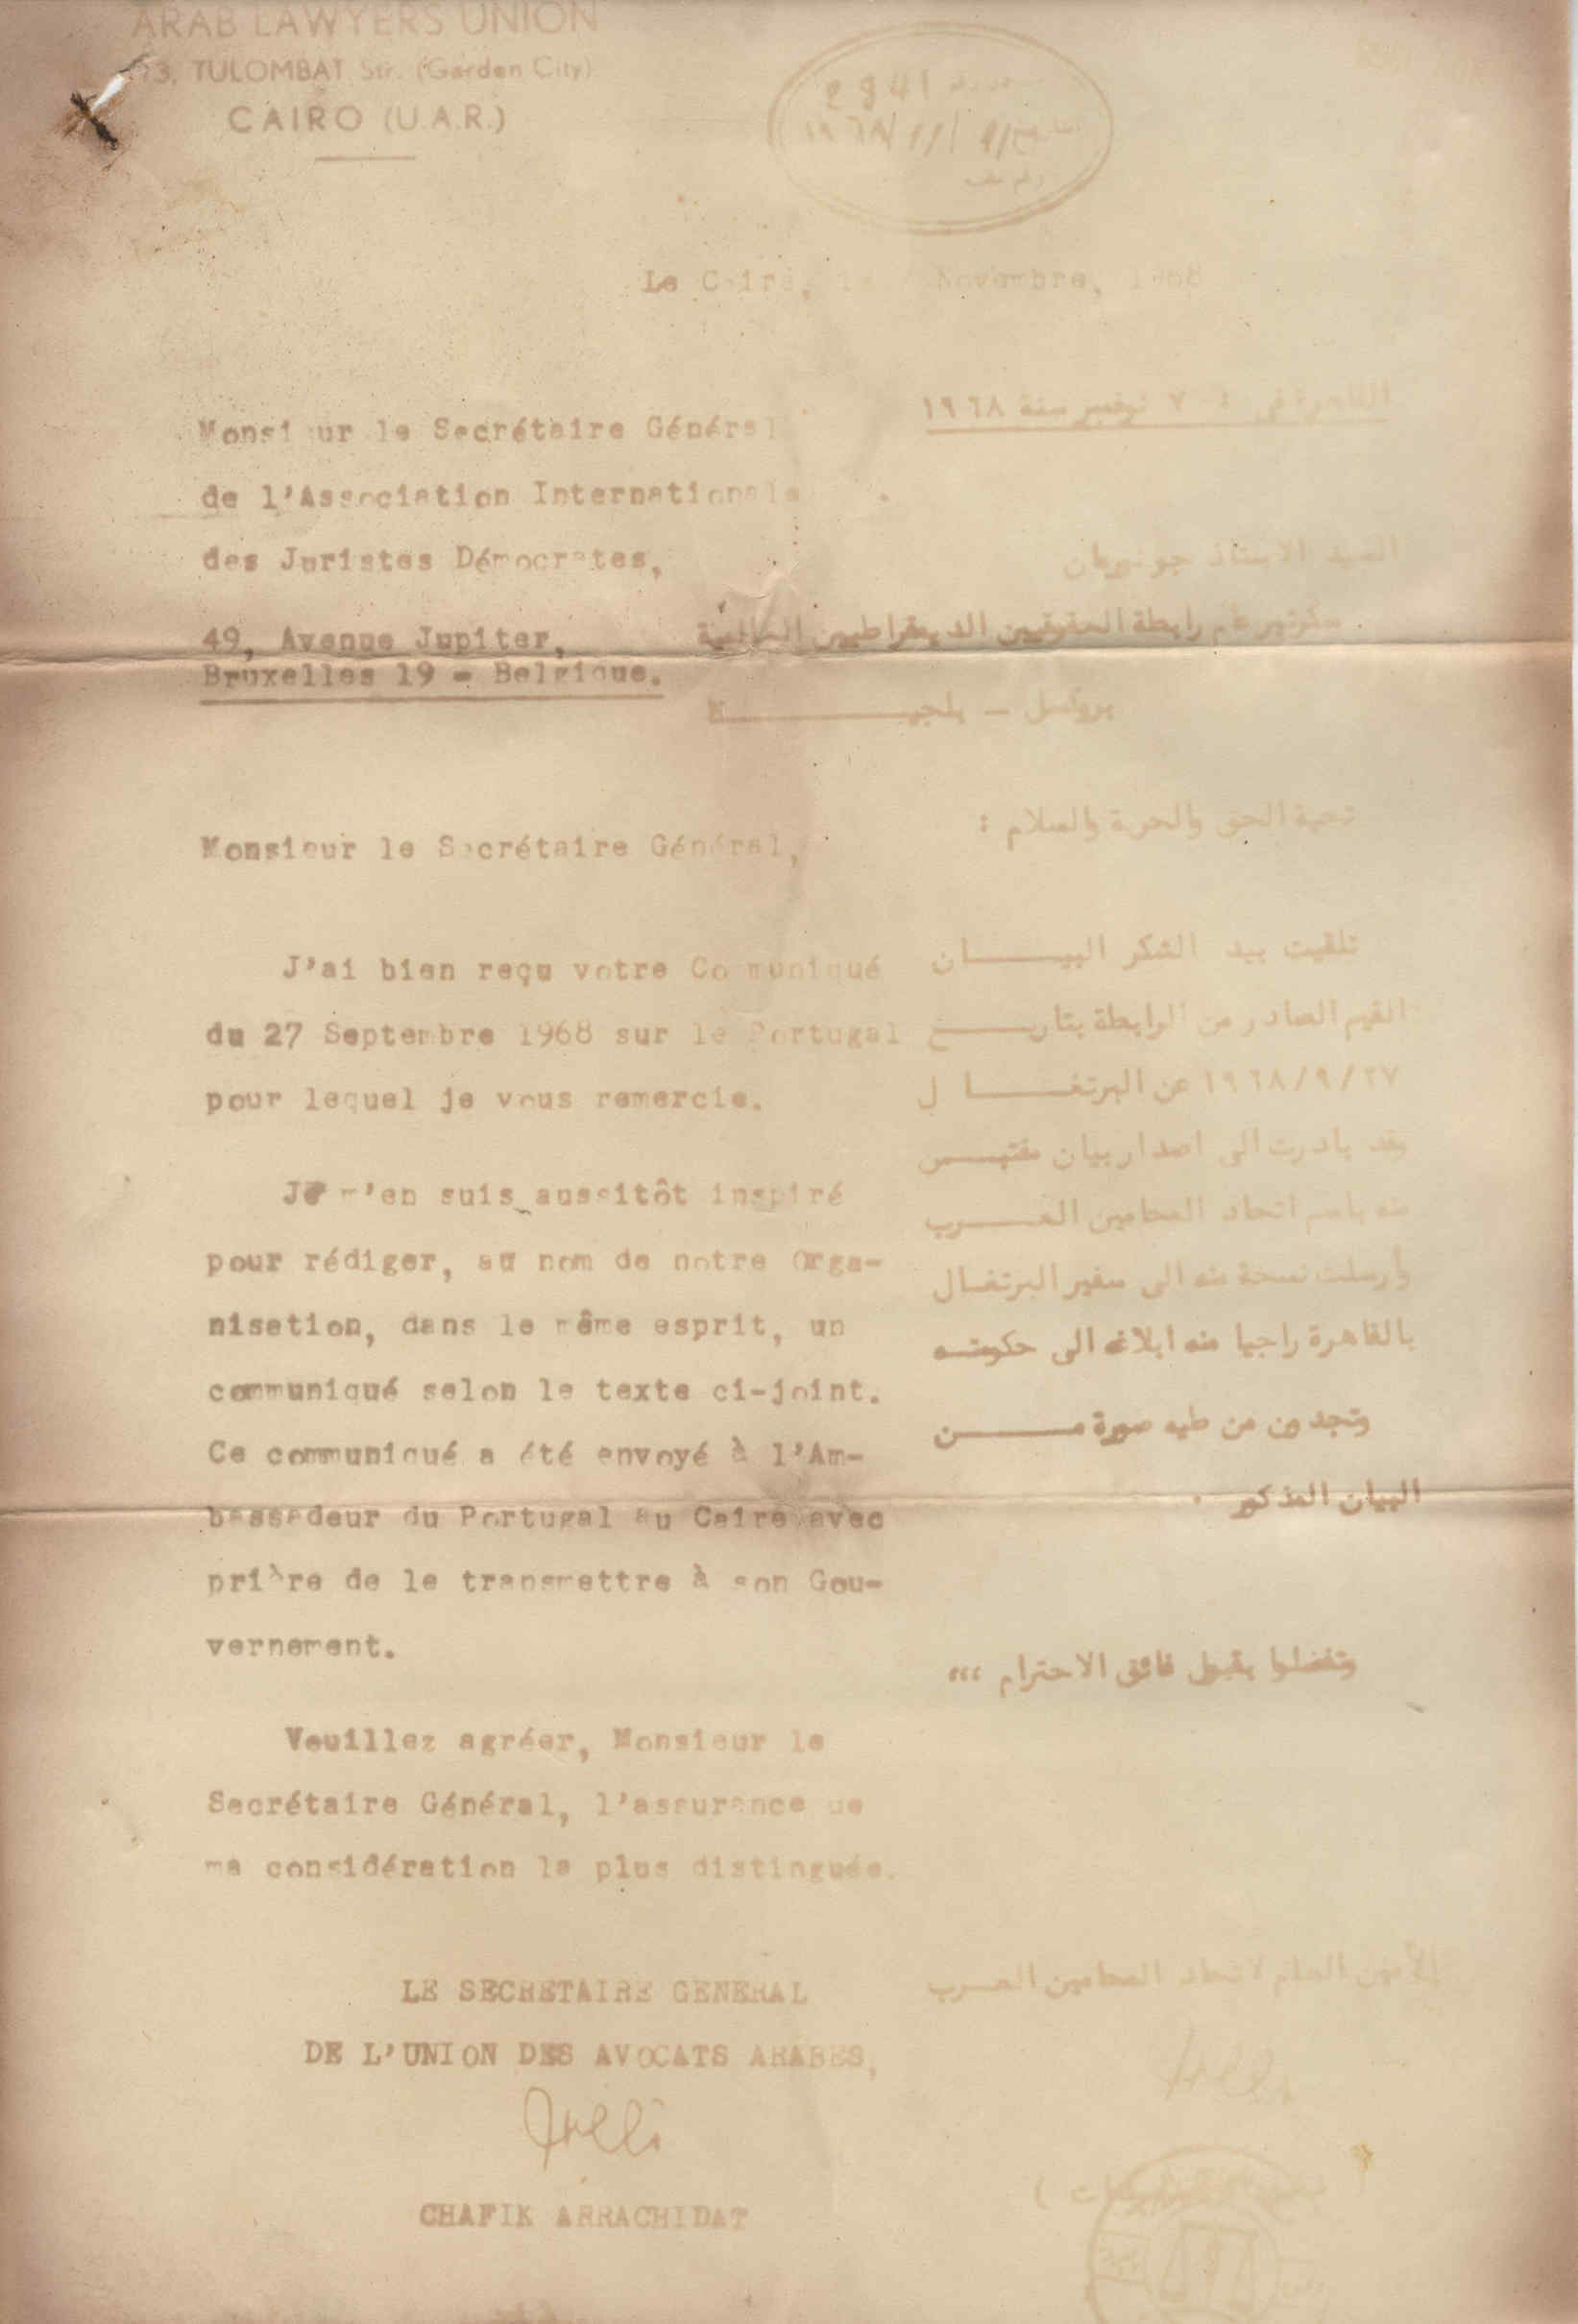 ARAB LAWYERS UNION
13, TULOMBAT Str. (Garden City)
CAIRO (U.A.R.)
2941
Le Caire, Novembre, 1968
Monsieur le Secrétaire Général
de l'Association Internationale
des Juristes Démocrates,
49, Avenue Jupiter,
Bruxelles 19 - Belgique.
القاهرة في ٧ نوفمبر سنة ١٩٦٨
السيد الاستاذ
سكرتير عام رابطة الحقوقيين الديمقراطيين العالمية
بروكسل -
Monsieur le Secrétaire Général,
J'ai bien reçu votre Communiqué
du 27 Septembre 1968 sur le Portugal
pour lequel je vous remercie.
Je m'en suis aussitôt inspiré
pour rédiger, au nom de notre Orga-
nisation, dans le même esprit, un
communiqué selon le texte ci-joint.
Ce communiqué a été envoyé à l'Am-
bassadeur du Portugal au Caire avec
prière de le transmettre à son Gou-
vernement.
Veuillez agréer, Monsieur le
Secrétaire Général, l'assurance de
ma considération la plus distinguée.
LE SECRETAIRE GENERAL
DE L'UNION DES AVOCATS ARABES,
CHAFIK ARRACHIDAT
تحية الحق والحرية والسلام :
تلقيت بيد الشكر البيـــــان
القيم الصادر من الرابطة بتاريـــــخ
١٩٦٨/٩/٢٧ عن البرتغـــــا ل
وقد بادرت الى اصدار بيان مقتبـــس
منه باسم اتحاد المحامين العـــــرب
وأرسلت نسخة منه الى سفير البرتغــال
بالقاهرة راجيا منه ابلاغه الى حكومتــه
وتجدون من طيه صورة مـــــــن
البيان المذكور ٠
وتفضلوا بقبول فائق الاحترام ،،،
الأمين العام لاتحاد المحامين العـــرب